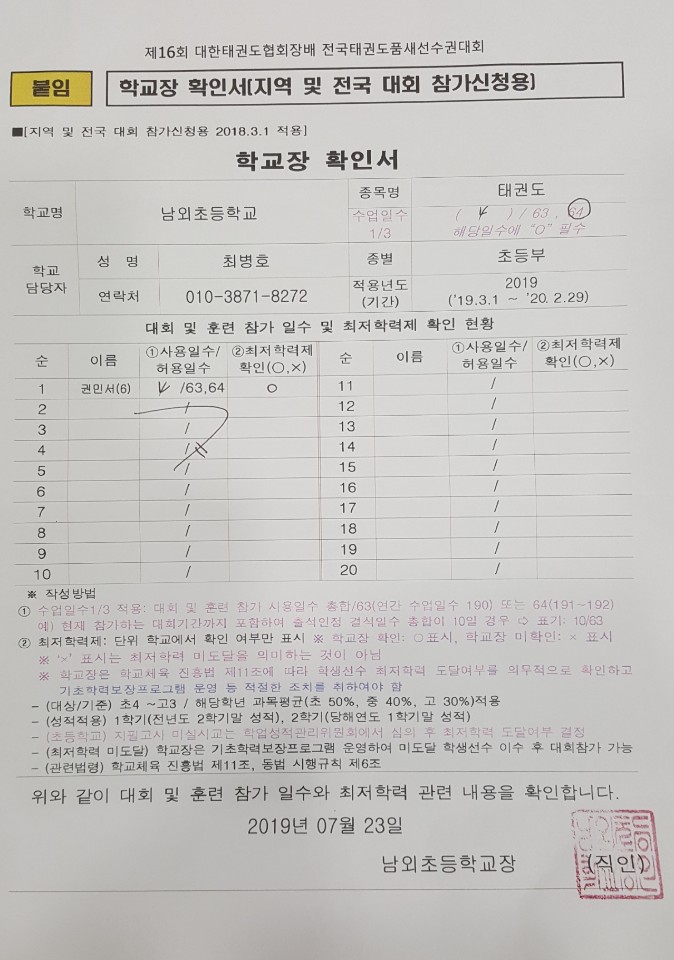 제16회 대한태권도협회장배 전국태권도품새선수권대회
붙임 학교장 확인서(지역 및 전국 대회 참가신청용)
■[지역 및 전국 대회 참가신청용 2018.3.1 적용]
학교장 확인서
학교명 남외초등학교 종목명 태권도
수업일수 1/3 ( ) / 63 , 64
해당일수에 "O" 필수
학교 담당자 성 명 최병호 종별 초등부
연락처 010-3871-8272 적용년도 (기간) 2019
('19.3.1 ~ '20. 2.29)
대회 및 훈련 참가 일수 및 최저학력제 확인 현황
순 이름 ①사용일수/ 허용일수 ②최저학력제 확인(○,×) 순 이름 ①사용일수/ 허용일수 ②최저학력제 확인(○,×)
1 권민서(6) /63,64 ○ 11 /
2 / 12 /
3 / 13 /
4 / 14 /
5 / 15 /
6 / 16 /
7 / 17 /
8 / 18 /
9 / 19 /
10 / 20 /
※ 작성방법
① 수업일수1/3 적용: 대회 및 훈련 참가 사용일수 총합/63(연간 수업일수 190) 또는 64(191~192)
예) 현재 참가하는 대회기간까지 포함하여 출석인정 결석일수 총합이 10일 경우 ⇨ 표기: 10/63
② 최저학력제: 단위 학교에서 확인 여부만 표시 ※ 학교장 확인: ○표시, 학교장 미확인: × 표시
※ '×' 표시는 최저학력 미도달을 의미하는 것이 아님
※ 학교장은 학교체육 진흥법 제11조에 따라 학생선수 최저학력 도달여부를 의무적으로 확인하고
기초학력보장프로그램 운영 등 적절한 조치를 취하여야 함
- (대상/기준) 초4 ~고3 / 해당학년 과목평균(초 50%, 중 40%, 고 30%)적용
- (성적적용) 1학기(전년도 2학기말 성적), 2학기(당해연도 1학기말 성적)
- (초등학교) 지필고사 미실시교는 학업성적관리위원회에서 심의 후 최저학력 도달여부 결정
- (최저학력 미도달) 학교장은 기초학력보장프로그램 운영하여 미도달 학생선수 이수 후 대회참가 가능
- (관련법령) 학교체육 진흥법 제11조, 동법 시행규칙 제6조
위와 같이 대회 및 훈련 참가 일수와 최저학력 관련 내용을 확인합니다.
2019년 07월 23일
남외초등학교장 (직인)